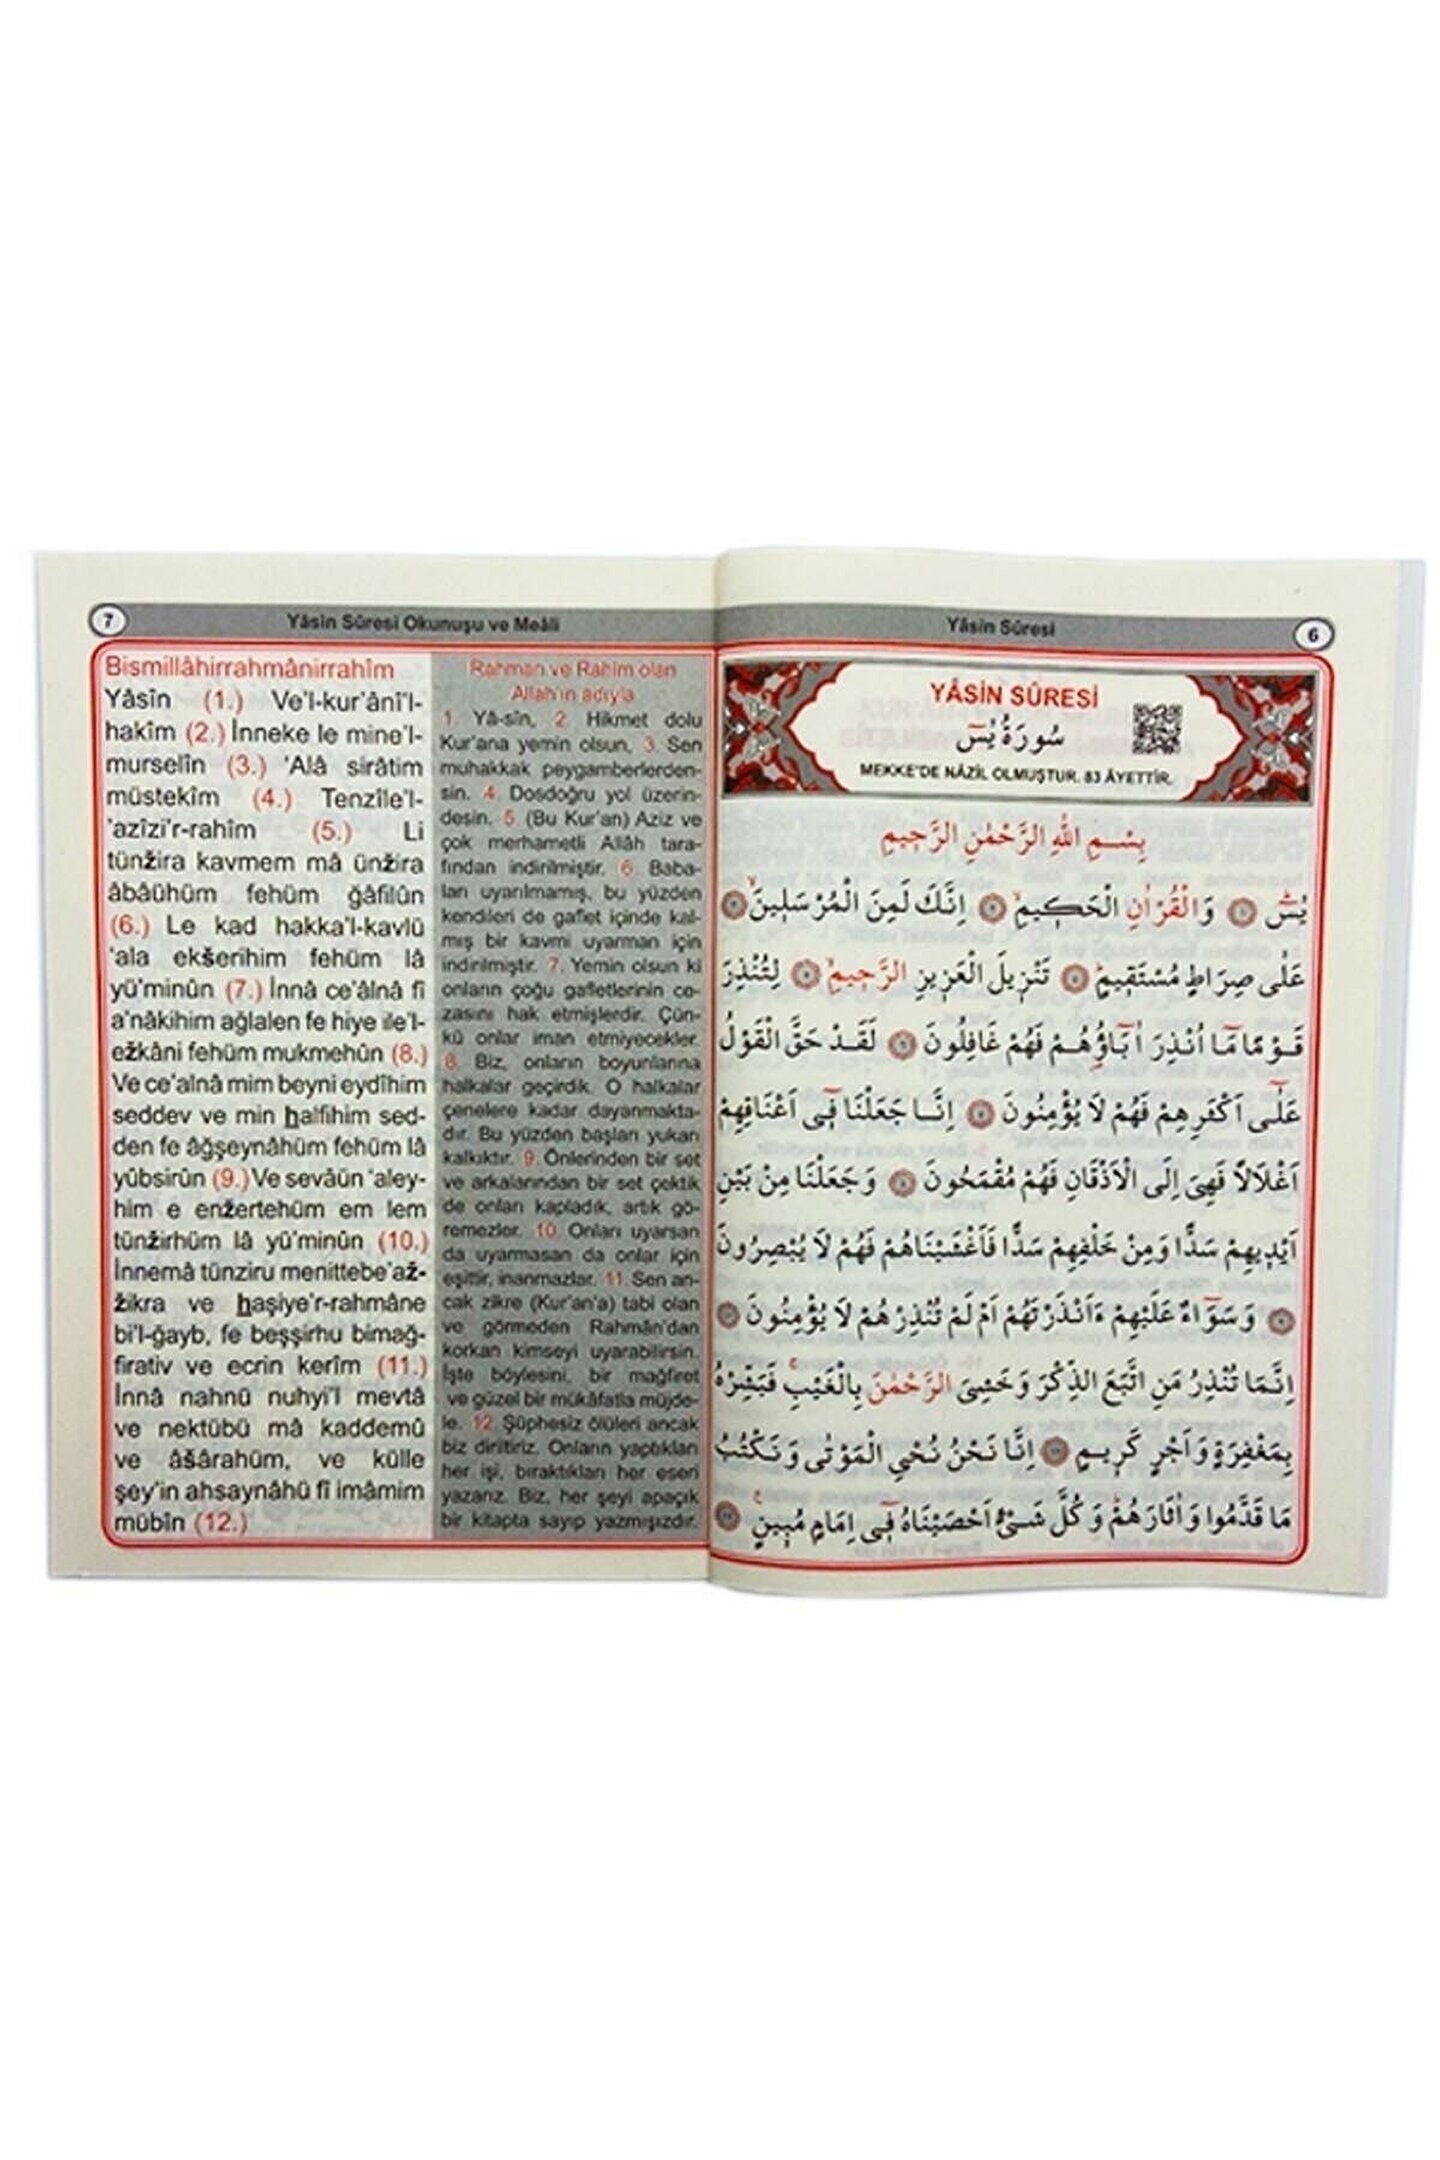 7
Yâsîn Sûresi Okunuşu ve Meâli
Bismillâhirrahmânirrahîm
Yâsîn (1.) Ve'l-kur'ânî'l-
hakîm (2.) İnneke le mine'l-
murselîn (3.) 'Alâ sirâtim
müstekîm (4.) Tenzîle'l-
'azîzi'r-rahîm (5.) Li
tünžira kavmem mâ ünžira
âbâühüm fehüm ğâfilûn
(6.) Le kad hakka'l-kavlü
'ala ekšerihim fehüm lâ
yü'minûn (7.) İnnâ ce'âlnâ fî
a'nâkihim ağlalen fe hiye ile'l-
ežkâni fehüm mukmehûn (8.)
Ve ce'alnâ mim beyni eydîhim
seddev ve min halfihim sed-
den fe âğşeynâhüm fehüm lâ
yübsirûn (9.) Ve sevâün 'aley-
him e enžertehüm em lem
tünžirhüm lâ yü'minûn (10.)
İnnemâ tünziru menittebe'až-
žikra ve haşiye'r-rahmâne
bi'l-ğayb, fe beşşirhu bimağ-
firativ ve ecrin kerîm (11.)
İnnâ nahnü nuhyi'l mevtâ
ve nektübü mâ kaddemû
ve âšârahüm, ve külle
şey'in ahsaynâhü fî imâmim
mübîn (12.)
Rahman ve Rahîm olan
Allah'ın adıyla
1. Yâ-sîn, 2. Hikmet dolu
Kur'ana yemin olsun, 3. Sen
muhakkak peygamberlerden-
sin. 4. Dosdoğru yol üzerin-
desin. 5. (Bu Kur'an) Aziz ve
çok merhametli Allâh tara-
fından indirilmiştir. 6. Baba-
ları uyarılmamış, bu yüzden
kendileri de gaflet içinde kal-
mış bir kavmi uyarman için
indirilmiştir. 7. Yemin olsun ki
onların çoğu gafletlerinin ce-
zasını hak etmişlerdir. Çün-
kü onlar iman etmiyecekler.
8. Biz, onların boyunlarına
halkalar geçirdik. O halkalar
çenelere kadar dayanmakta-
dır. Bu yüzden başları yukarı
kalkıktır. 9. Önlerinden bir set
ve arkalarından bir set çektik
de onları kapladık, artık gö-
remezler. 10. Onları uyarsan
da uyarmasan da onlar için
eşittir, inanmazlar. 11. Sen an-
cak zikre (Kur'an'a) tabi olan
ve görmeden Rahmân'dan
korkan kimseyi uyarabilirsin.
İşte böylesini, bir mağfiret
ve güzel bir mükâfatla müjde-
le. 12. Şüphesiz ölüleri ancak
biz diriltiriz. Onların yaptıkları
her işi, bıraktıkları her eseri
yazarız. Biz, her şeyi apaçık
bir kitapta sayıp yazmışızdır.
Yâsîn Sûresi
6
YÂSİN SÛRESİ
سُورَةُ يٰسٓ
MEKKE'DE NÂZİL OLMUŞTUR. 83 ÂYETTİR.
بِسْمِ اللّٰهِ الرَّحْمٰنِ الرَّحِيمِ
يٰسٓ ۝ وَالْقُرْاٰنِ الْحَكِيمِۙ ۝ اِنَّكَ لَمِنَ الْمُرْسَلِينَۙ ۝
عَلٰى صِرَاطٍ مُسْتَقِيمٍۜ ۝ تَنْزِيلَ الْعَزِيزِ الرَّحِيمِۙ ۝ لِتُنْذِرَ
قَوْمًا مَٓا اُنْذِرَ اٰبَٓاؤُ۬هُمْ فَهُمْ غَافِلُونَ ۝ لَقَدْ حَقَّ الْقَوْلُ
عَلٰٓى اَكْثَرِهِمْ فَهُمْ لَا يُؤْمِنُونَ ۝ اِنَّا جَعَلْنَا فِٓى اَعْنَاقِهِمْ
اَغْلَالًا فَهِىَ اِلَى الْاَذْقَانِ فَهُمْ مُقْمَحُونَ ۝ وَجَعَلْنَا مِنْ بَيْنِ
اَيْدِيهِمْ سَدًّا وَمِنْ خَلْفِهِمْ سَدًّا فَاَغْشَيْنَاهُمْ فَهُمْ لَا يُبْصِرُونَ
۝ وَسَوَٓاءٌ عَلَيْهِمْ ءَاَنْذَرْتَهُمْ اَمْ لَمْ تُنْذِرْهُمْ لَا يُؤْمِنُونَ ۝
اِنَّمَا تُنْذِرُ مَنِ اتَّبَعَ الذِّكْرَ وَخَشِىَ الرَّحْمٰنَ بِالْغَيْبِۚ فَبَشِّرْهُ
بِمَغْفِرَةٍ وَاَجْرٍ كَرِيمٍ ۝ اِنَّا نَحْنُ نُحْىِ الْمَوْتٰى وَنَكْتُبُ
مَا قَدَّمُوا وَاٰثَارَهُمْۜ وَكُلَّ شَىْءٍ اَحْصَيْنَاهُ فِٓى اِمَامٍ مُبِينٍ۟ ۝